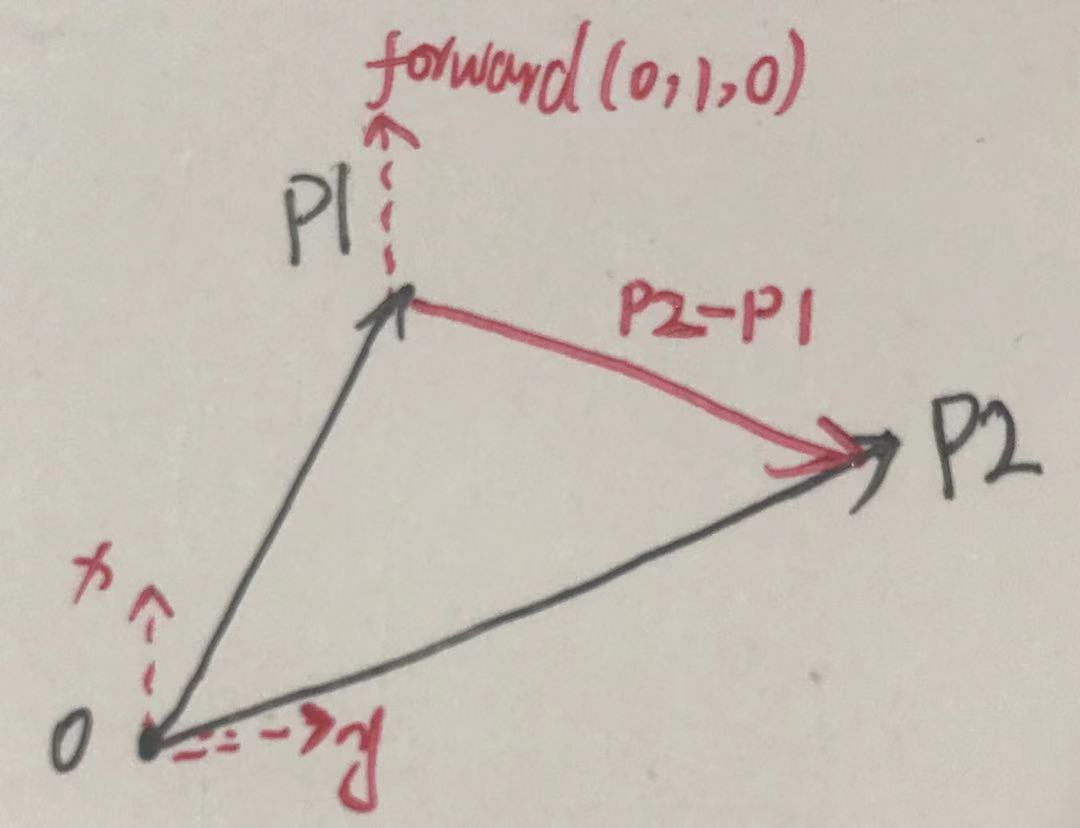 forward (0,1,0)
P1
P2-P1
P2
x
O
y